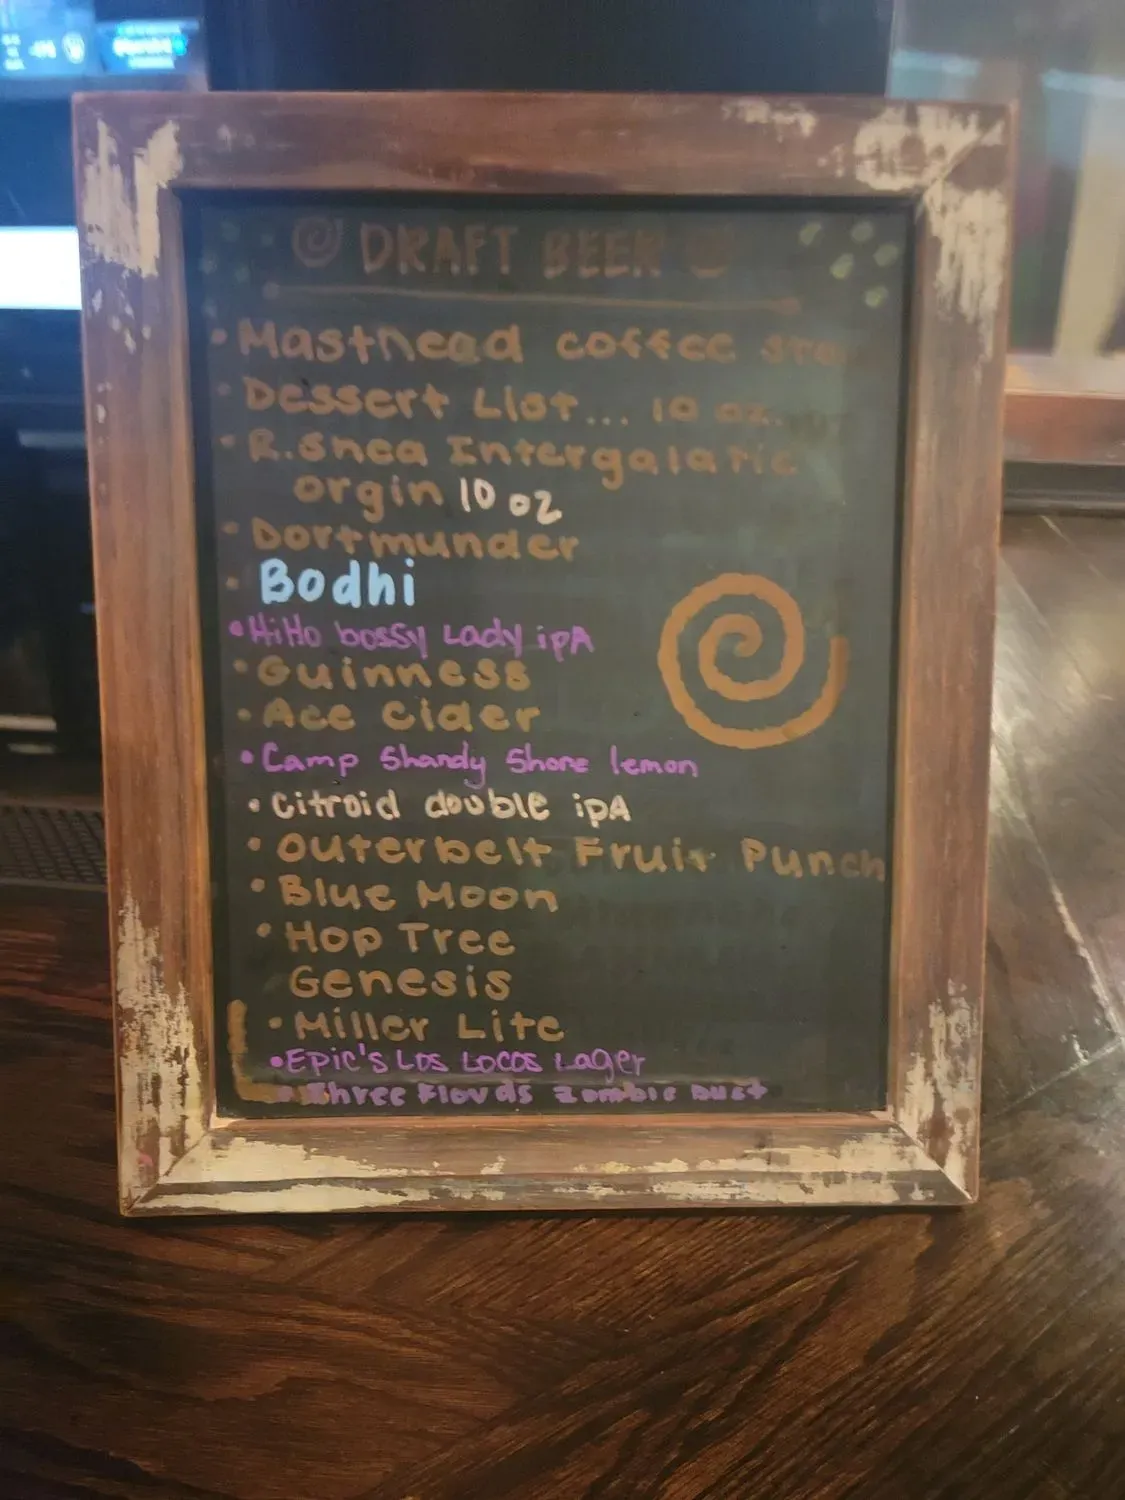 DRAFT BEER
• Masthead coffee
• Dessert List... 10 oz.
• R.Shea Intergalatic
orgin 10 oz
• Dortmunder
• Bodhi
• HiHo bossy Lady ipA
• Guinness
• Ace Cider
• Camp Shandy Shore lemon
• Citroid double ipA
• Outerbelt Fruit Punch
• Blue Moon
• Hop Tree
Genesis
• Miller Lite
• Epic's Los Locos Lager
• Three Floyds Zombie Dust